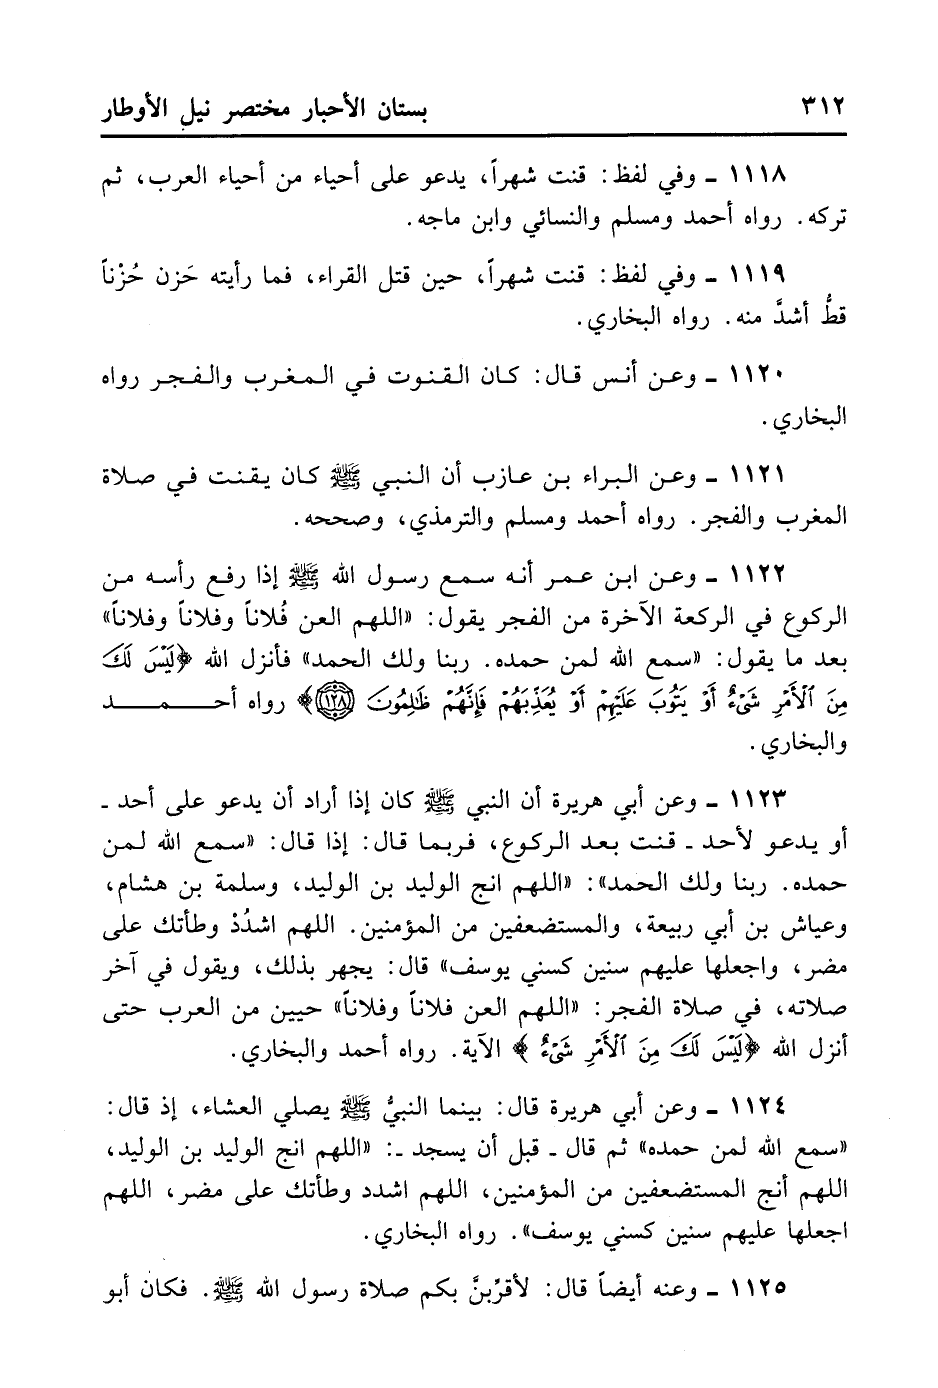 ٣١٢ بستان الأحبار مختصر نيل الأوطار
١١١٨ ـ وفي لفظ: قنت شهراً، يدعو على أحياء من أحياء العرب، ثم
تركه. رواه أحمد ومسلم والنسائي وابن ماجه.
١١١٩ ـ وفي لفظ: قنت شهراً، حين قتل القراء، فما رأيته حَزن حُزْناً
قطُّ أشدَّ منه. رواه البخاري.
١١٢٠ ـ وعن أنس قال: كان القنوت في المغرب والفجر رواه
البخاري.
١١٢١ ـ وعن البراء بن عازب أن النبي ﷺ كان يقنت في صلاة
المغرب والفجر. رواه أحمد ومسلم والترمذي، وصححه.
١١٢٢ ـ وعن ابن عمر أنه سمع رسول الله ﷺ إذا رفع رأسه من
الركوع في الركعة الآخرة من الفجر يقول: «اللهم العن فُلاناً وفلاناً وفلاناً»
بعد ما يقول: «سمع الله لمن حمده. ربنا ولك الحمد» فأنزل الله ﴿لَيْسَ لَكَ
مِنَ ٱلْأَمْرِ شَىْءٌ أَوْ يَتُوبَ عَلَيْهِمْ أَوْ يُعَذِّبَهُمْ فَإِنَّهُمْ ظَٰلِمُونَ ١٢٨﴾ رواه أحـــمـــد
والبخاري.
١١٢٣ ـ وعن أبي هريرة أن النبي ﷺ كان إذا أراد أن يدعو على أحد ـ
أو يدعو لأحد ـ قنت بعد الركوع، فربما قال: إذا قال: «سمع الله لمن
حمده. ربنا ولك الحمد»: «اللهم انج الوليد بن الوليد، وسلمة بن هشام،
وعياش بن أبي ربيعة، والمستضعفين من المؤمنين. اللهم اشدُدْ وطأتك على
مضر، واجعلها عليهم سنين كسني يوسف» قال: يجهر بذلك، ويقول في آخر
صلاته، في صلاة الفجر: «اللهم العن فلاناً وفلاناً» حيين من العرب حتى
أنزل الله ﴿لَيْسَ لَكَ مِنَ ٱلْأَمْرِ شَىْءٌ﴾ الآية. رواه أحمد والبخاري.
١١٢٤ ـ وعن أبي هريرة قال: بينما النبيُّ ﷺ يصلي العشاء، إذ قال:
«سمع الله لمن حمده» ثم قال ـ قبل أن يسجد ـ: «اللهم انج الوليد بن الوليد،
اللهم أنج المستضعفين من المؤمنين، اللهم اشدد وطأتك على مضر، اللهم
اجعلها عليهم سنين كسني يوسف». رواه البخاري.
١١٢٥ ـ وعنه أيضاً قال: لأقرِّبنَّ بكم صلاة رسول الله ﷺ. فكان أبو